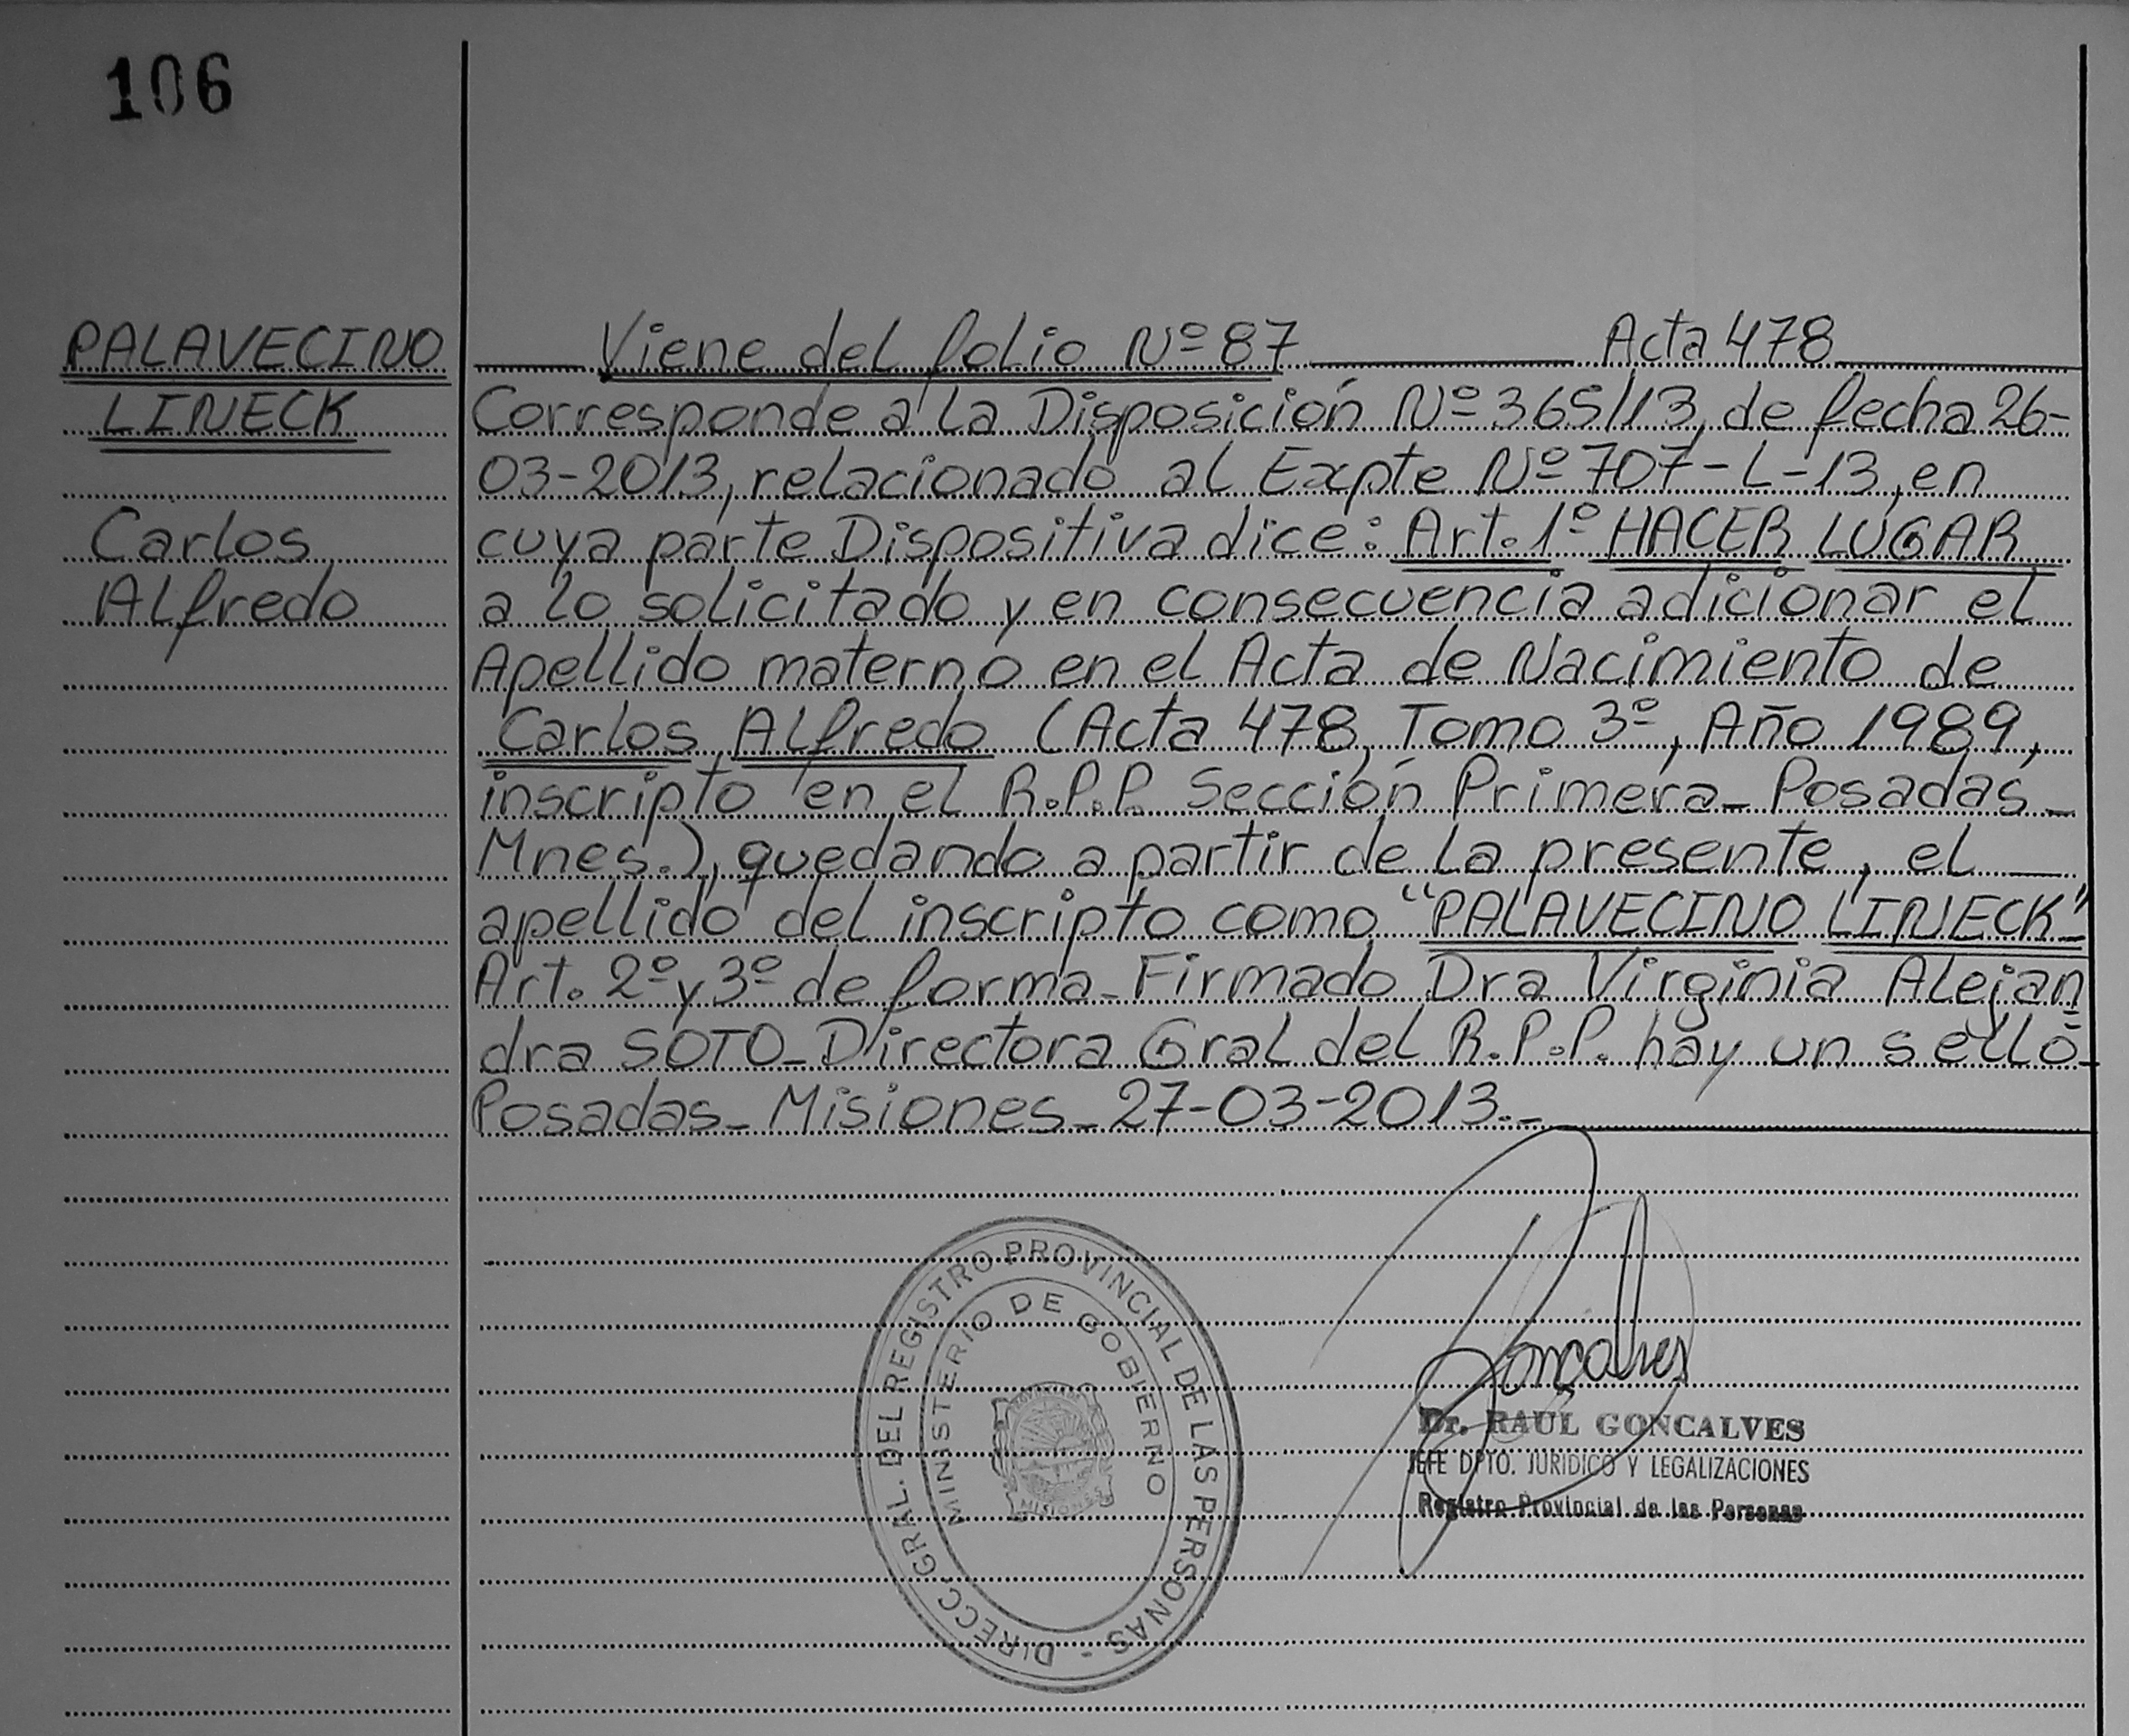 106
PALAVECINO
LINECK
Carlos
Alfredo
Viene del folio Nº 87 Acta 478
Corresponde a la Disposición Nº 365/13, de fecha 26-
03-2013, relacionado al Expte Nº 707-L-13, en
cuya parte Dispositiva dice: Art. 1º HACER LUGAR
a lo solicitado y en consecuencia adicionar el
Apellido materno en el Acta de Nacimiento de
Carlos Alfredo (Acta 478, Tomo 3º, Año 1989,
inscripto en el R.P.P. Sección Primera_ Posadas_
Mnes.), quedando a partir de la presente, el
apellido del inscripto como "PALAVECINO LINECK"_
Art. 2º y 3º de forma_ Firmado Dra Virginia Alejan
dra SOTO_ Directora Gral del R.P.P. hay un sello_
Posadas_ Misiones_ 27-03-2013._
DIRECC. GRAL. DEL REGISTRO PROVINCIAL DE LAS PERSONAS -
MINISTERIO DE GOBIERNO
MISIONES
Goncalves
Dr. RAUL GONCALVES
JEFE DPTO. JURIDICO Y LEGALIZACIONES
Registro Provincial de las Personas